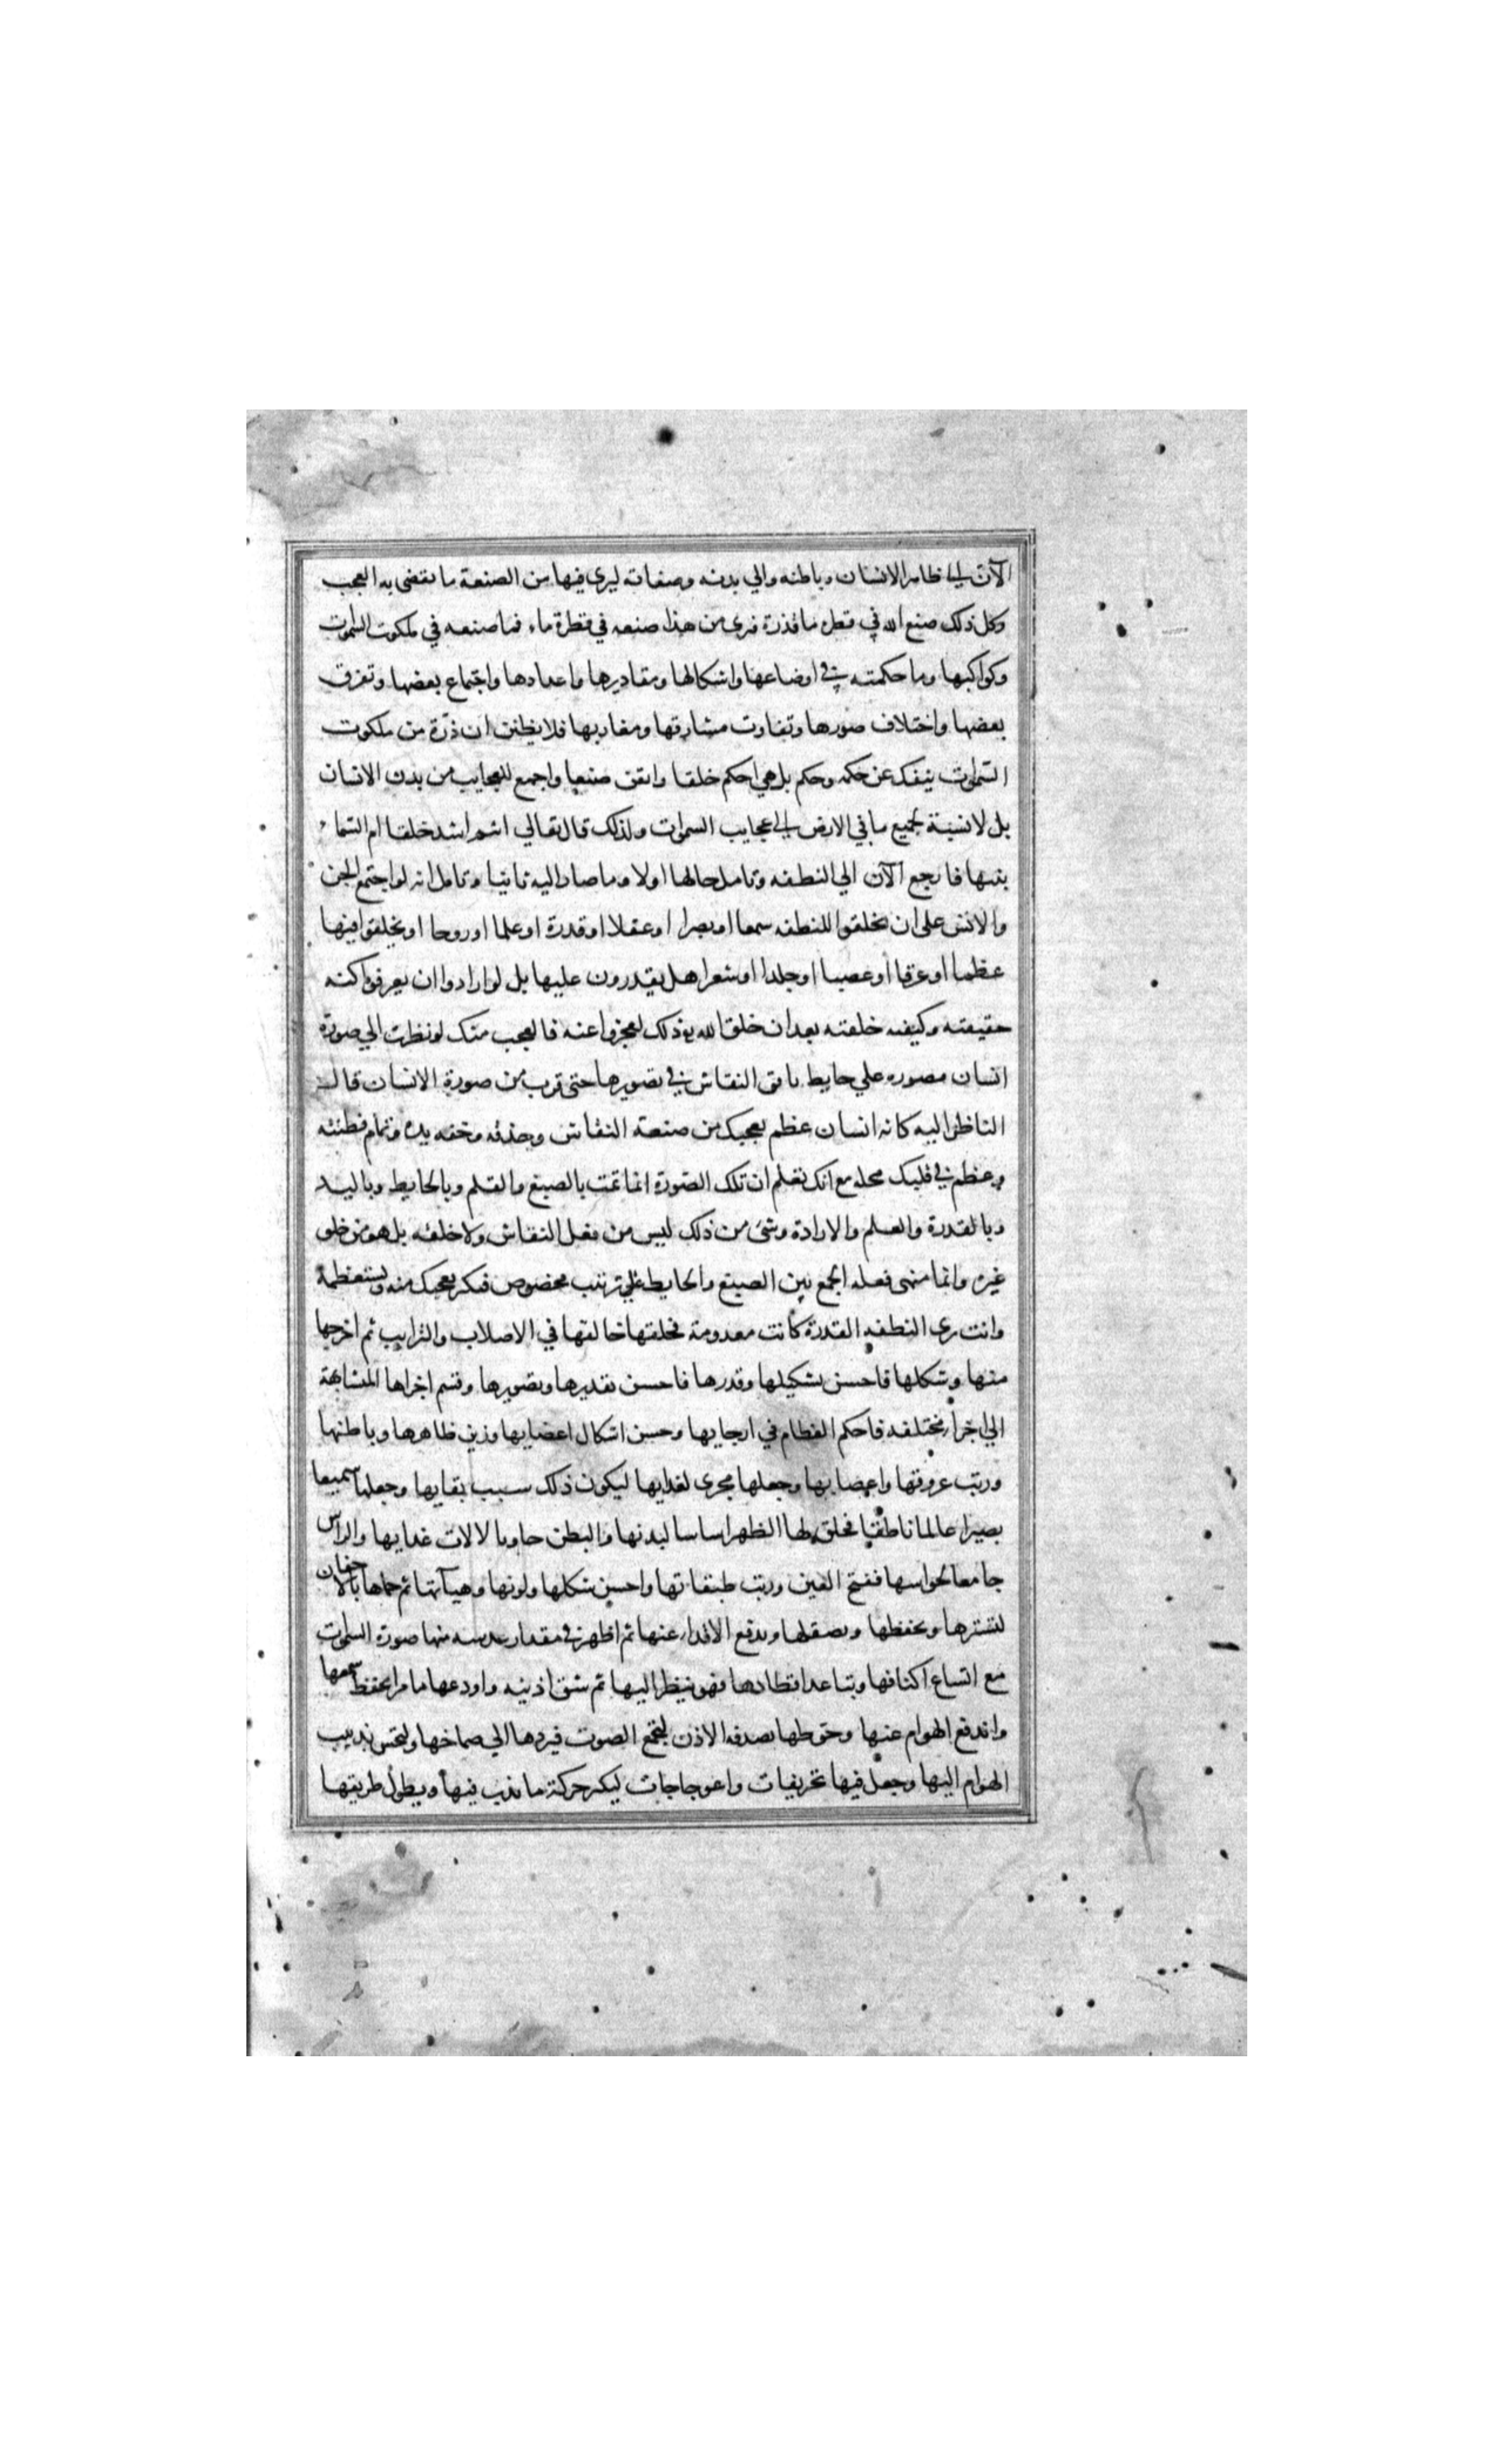 الآن الي ظاهر الانسان وباطنه والي بدنه وصفاته ليري فيها من الصنعة ما يقضي به العجب
وكل ذلك صنع الله في قطرة ماء قذرة فترى من هذا صنعه في قطرة ماء فما صنعه في ملكوت السموات
وكواكبها وما حكمته في اوضاعها واشكالها ومقاديرها واعدادها واجتماع بعضها وتفرق
بعضها واختلاف صورها وتفاوت مشارقها ومغاربها فلا يظنن ان ذرة من ملكوت
السموات ينفك عن حكمه وحكم بل هي احكم خلقا واتقن صنعا واجمع للعجايب من بدن الانسان
بل لا نسبة لجميع ما في الارض الي عجايب السموات ولذلك قال تعالي انتم اشد خلقا ام السماء
بنيها فارجع الآن الي النطفه وتامل حالها اولا وما صار اليه ثانيا وتامل انه لو اجتمع الجن
والانس علي ان يخلقوا للنطفه سمعا او بصرا او عقلا او قدرة او علما او روحا او يخلقوا فيها
عظما او عرقا او عصبا او جلدا او شعرا هل يقدرون عليها بل لو ارادوا ان يعرفوا كنه
حقيقته وكيفيه خلقته بعد ان خلق الله ذلك لعجزوا عنه فالعجب منك لو نظرت الي صورة
انسان مصوره علي حايط تانق النقاش في تصويرها حتي قرب من صورة الانسان قال
الناظر اليه كانه انسان عظم تعجبك من صنعة النقاش وحذقه وخفه يده وتمام فطنته
وعظم في قلبك محله مع انك تعلم ان تلك الصورة انما تمت بالصبغ والقلم وبالحايط وباليد
وبالقدرة والعلم والارادة وشئ من ذلك ليس من فعل النقاش ولا خلقه بل هو من خلق
غيره وانما منتهي فعله الجمع بين الصبغ والحايط علي ترتيب مخصوص فيكثر تعجبك منه وتستعظمه
وانت ترى النطفه القذرة كانت معدومة فخلقها خالقها في الاصلاب والترايب ثم اخرجها
منها وشكلها فاحسن تشكيلها وقدرها فاحسن تقديرها وتصويرها وقسم اجزاها المتشابهة
الي اجزاء مختلفه فاحكم العظام في ارجايها وحسن اشكال اعضايها وزين ظاهرها وباطنها
ورتب عروقها واعصابها وجعلها مجرى لغدايها ليكون ذلك سبب بقايها وجعلها سميعا
بصيرا عالما ناطقا فخلق لها الظهر اساسا لبدنها والبطن حاويا لالات غدايها والراس
جامعا لحواسها ففتح العين ورتب طبقاتها واحسن شكلها ولونها وهيآتها ثم حماها بالاجفان
لتسترها وتحفظها وتصقلها وتدفع الاقدار عنها ثم اظهر في مقدار عدسه منها صورة السموات
مع اتساع اكنافها وتباعد اقطارها فهو ينظر اليها ثم شق اذنيه واودعها ماء مرا يحفظ سمعها
واندفع الهوام عنها وحوطها بصدفه الاذن لتجمع الصوت فيردها الي صماخها ولتحس بدبيب
الهوام اليها وجعل فيها تحريفات واعوجاجات ليكثر حركة ما يدب فيها ويطول طريقها